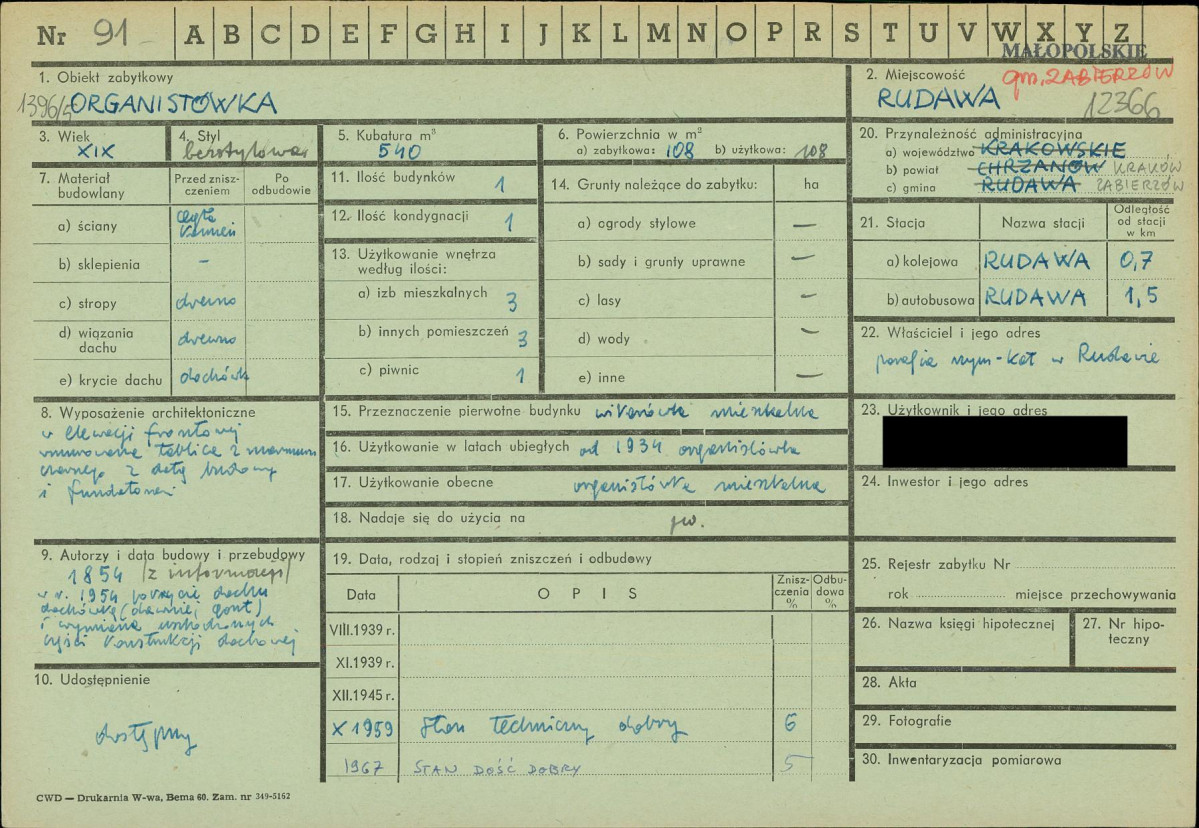 Nr 91 A B C D E F G H I J K L M N O P R S T U V W X Y Z
MAŁOPOLSKIE
1. Obiekt zabytkowy
1396/5 ORGANISTÓWKA
2. Miejscowość gm. ZABIERZÓW
RUDAWA 12366
3. Wiek
XIX
4. Styl
bezstylowa
5. Kubatura m³
540
6. Powierzchnia w m²
a) zabytkowa: 108 b) użytkowa: 108
7. Materiał budowlany
Przed zniszczeniem
Po odbudowie
a) ściany cegła kamień
b) sklepienia –
c) stropy drewno
d) wiązania dachu drewno
e) krycie dachu dachówka
8. Wyposażenie architektoniczne
w elewacji frontowej
wmurowana tablica z marmuru
czarnego z datą budowy
i fundatorami
9. Autorzy i data budowy i przebudowy
1854 /z informacji/
w r. 1954 pokrycie dachu
dachówką (dawniej gont)
i wymiana uszkodzonych
części konstrukcji dachowej
10. Udostępnienie
dostępny
11. Ilość budynków 1
12. Ilość kondygnacji 1
13. Użytkowanie wnętrza
według ilości:
a) izb mieszkalnych 3
b) innych pomieszczeń 3
c) piwnic 1
14. Grunty należące do zabytku: ha
a) ogrody stylowe —
b) sady i grunty uprawne —
c) lasy —
d) wody —
e) inne —
15. Przeznaczenie pierwotne budynku wikarówka mieszkalna
16. Użytkowanie w latach ubiegłych od 1934 organistówka
17. Użytkowanie obecne organistówka mieszkalna
18. Nadaje się do użycia na jw.
19. Data, rodzaj i stopień zniszczeń i odbudowy
Data OPIS Zniszczenia % Odbudowa %
VIII.1939 r.
XI.1939 r.
XII.1945 r.
X 1959 Stan techniczny dobry 6
1967 STAN DOŚĆ DOBRY 5
20. Przynależność administracyjna
a) województwo KRAKOWSKIE
b) powiat CHRZANÓW KRAKÓW
c) gmina RUDAWA ZABIERZÓW
21. Stacja Nazwa stacji Odległość od stacji w km
a) kolejowa RUDAWA 0,7
b) autobusowa RUDAWA 1,5
22. Właściciel i jego adres
parafia rzym-kat w Rudawie
23. Użytkownik i jego adres
24. Inwestor i jego adres
25. Rejestr zabytku Nr
rok miejsce przechowywania
26. Nazwa księgi hipotecznej
27. Nr hipoteczny
28. Akta
29. Fotografie
30. Inwentaryzacja pomiarowa
CWD — Drukarnia W-wa, Bema 60. Zam. nr 349-5162